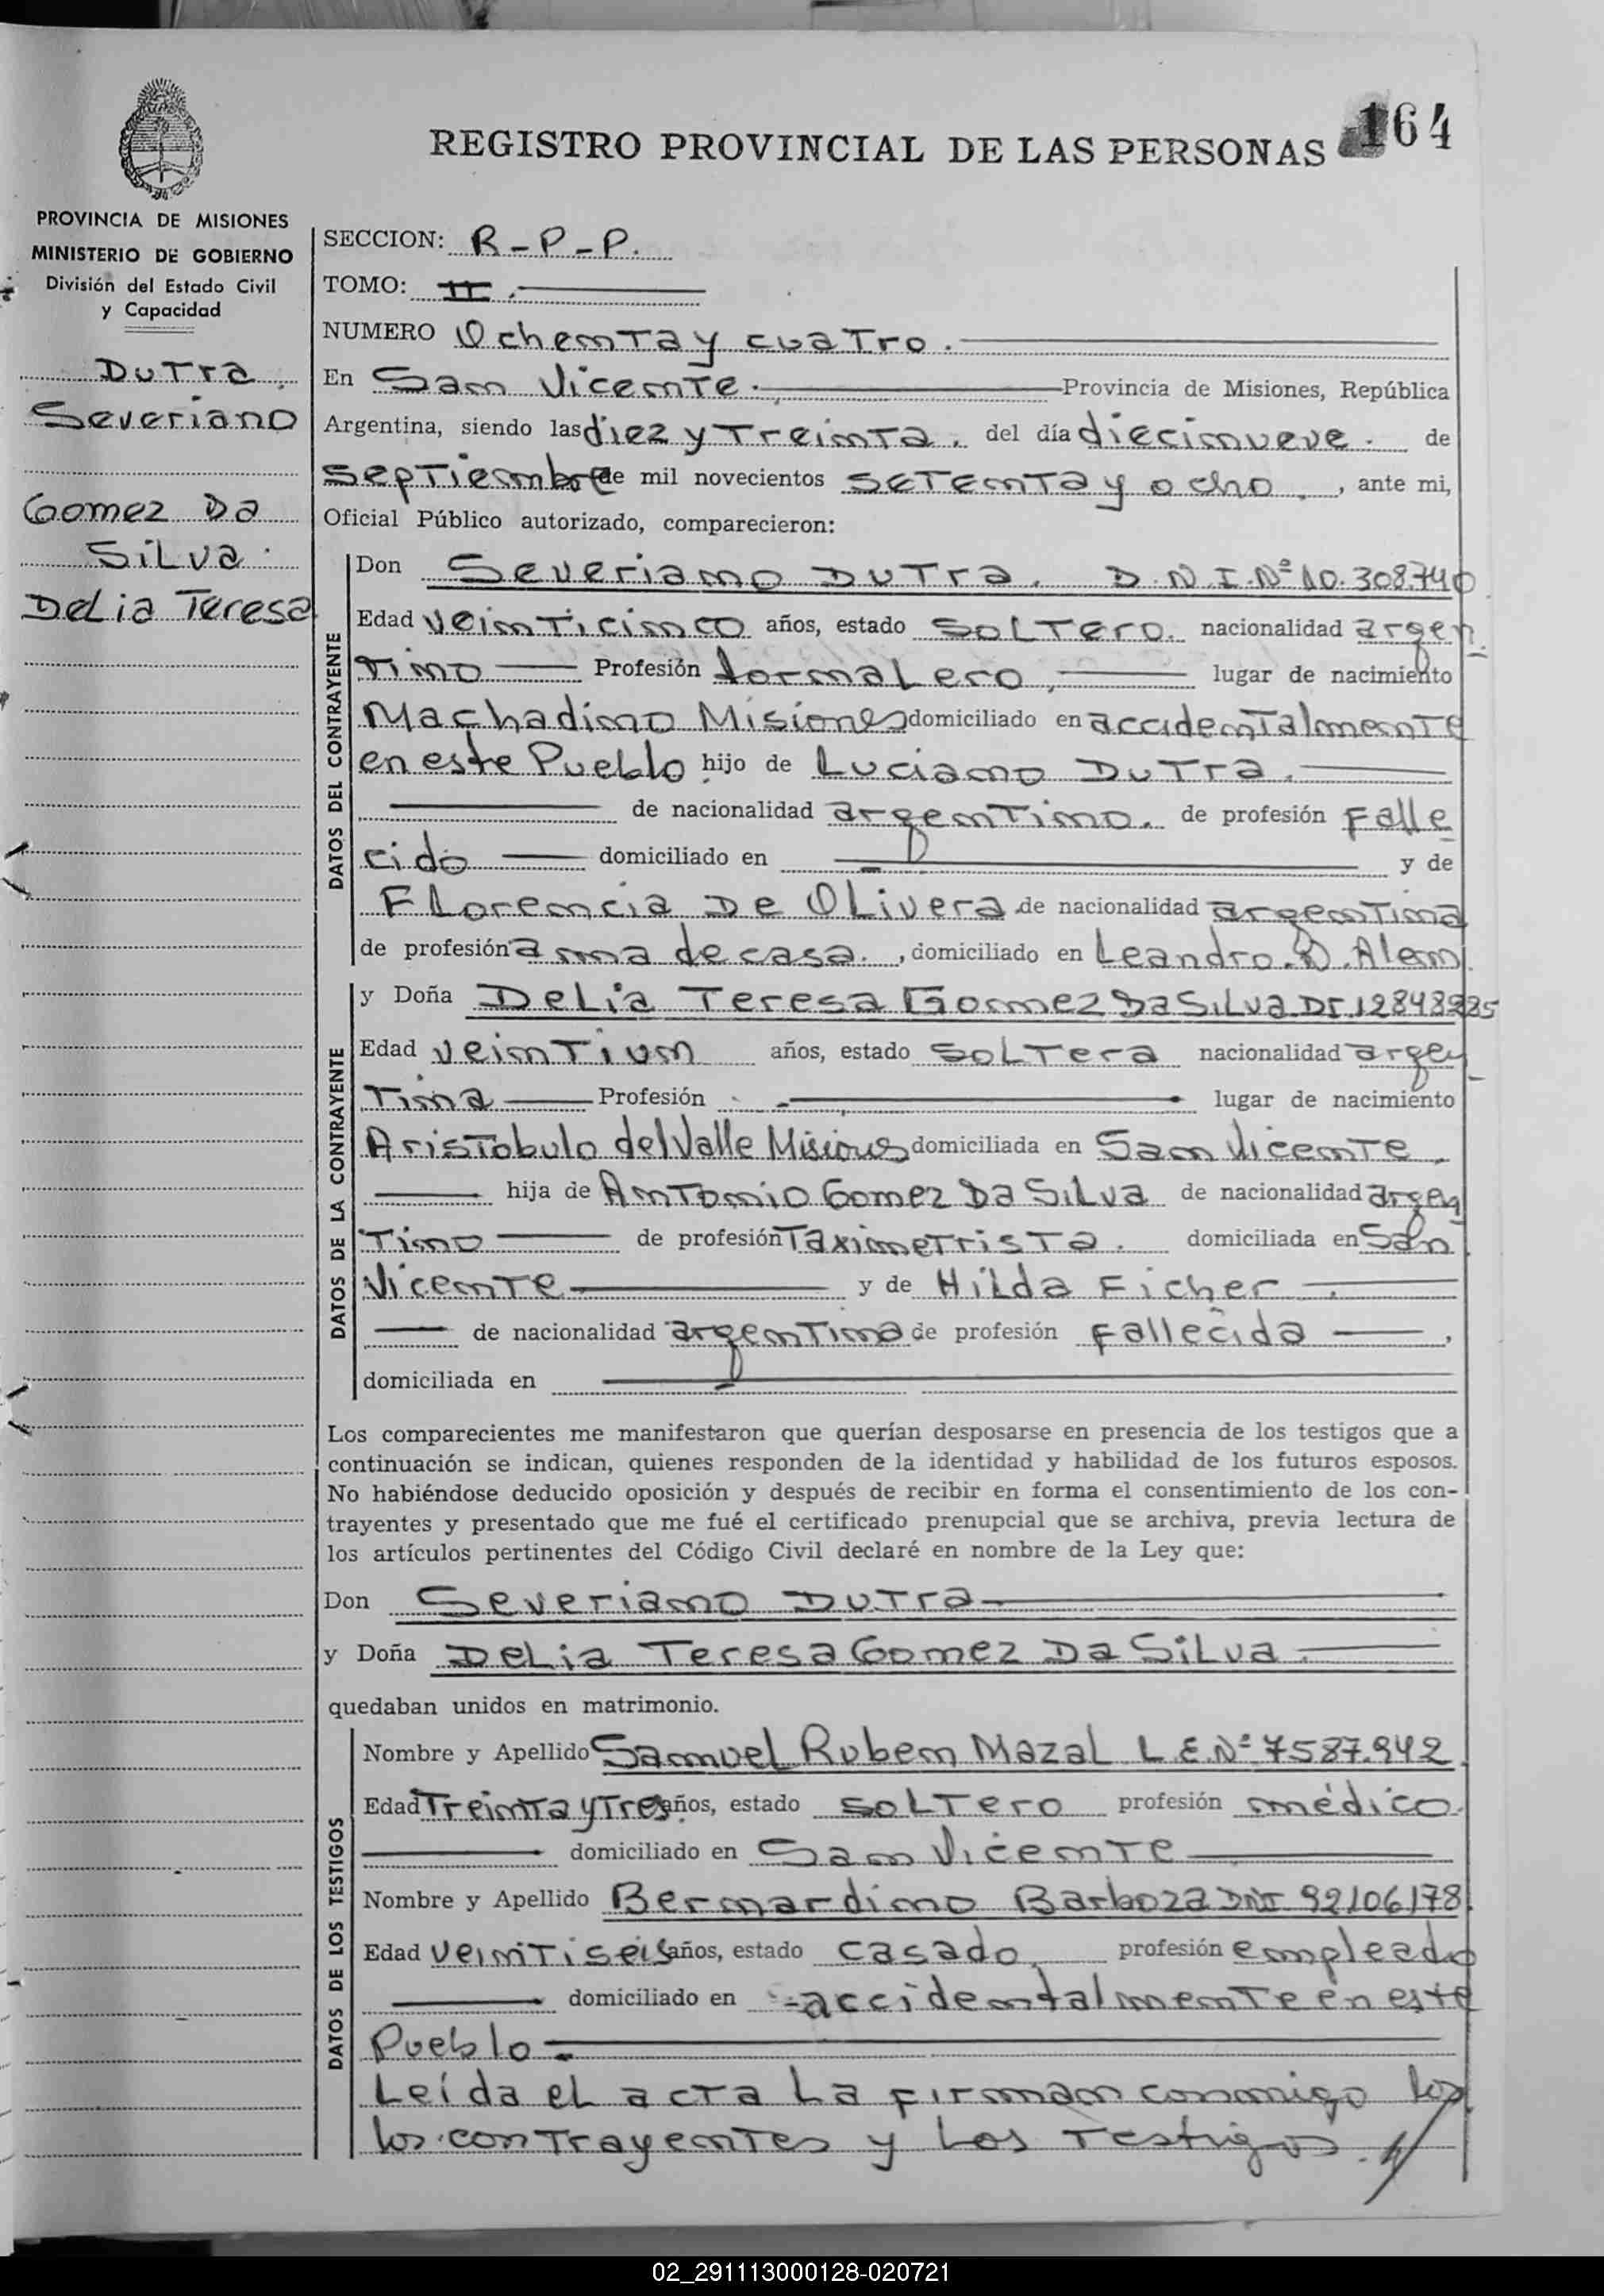 164
REGISTRO PROVINCIAL DE LAS PERSONAS
PROVINCIA DE MISIONES
MINISTERIO DE GOBIERNO
División del Estado Civil
y Capacidad
Dutra.
Severiano
Gomez Da
Silva.
Delia Teresa
SECCION: R-P-P.
TOMO: II.
NUMERO Ochenta y cuatro.
En San Vicente. Provincia de Misiones, República
Argentina, siendo las diez y treinta. del día diecinueve. de
septiembre de mil novecientos setenta y ocho, , ante mi,
Oficial Público autorizado, comparecieron:
DATOS DEL CONTRAYENTE
Don Severiano Dutra. D.N.I.Nº 10.308.740
Edad veinticinco años, estado soltero. nacionalidad argen
tino Profesión Jornalero, lugar de nacimiento
Machadino Misiones domiciliado en accidentalmente
en este Pueblo, hijo de Luciano Dutra.
de nacionalidad argentino. de profesión Falle
cido domiciliado en y de
Florencia De Olivera de nacionalidad argentina
de profesión ama de casa. , domiciliado en Leandro.N.Alem.
DATOS DE LA CONTRAYENTE
y Doña Delia Teresa Gomez Da Silva DI.12848285
Edad veintiun años, estado soltera nacionalidad argen
tina Profesión lugar de nacimiento
Aristobulo del Valle Misiones domiciliada en San Vicente,
hija de Antonio Gomez Da Silva de nacionalidad argen
tino de profesión Taximetrista. domiciliada en San
Vicente y de Hilda Ficher
de nacionalidad argentina de profesión Fallecida ,
domiciliada en
Los comparecientes me manifestaron que querían desposarse en presencia de los testigos que a
continuación se indican, quienes responden de la identidad y habilidad de los futuros esposos.
No habiéndose deducido oposición y después de recibir en forma el consentimiento de los con-
trayentes y presentado que me fué el certificado prenupcial que se archiva, previa lectura de
los artículos pertinentes del Código Civil declaré en nombre de la Ley que:
Don Severiano Dutra
y Doña Delia Teresa Gomez Da Silva.
quedaban unidos en matrimonio.
DATOS DE LOS TESTIGOS
Nombre y Apellido Samuel Ruben Mazal L.E.Nº 7587.942
Edad Treinta y Tres años, estado soltero profesión médico.
domiciliado en San Vicente
Nombre y Apellido Bernardino Barboza DNI 92106178
Edad veintiseis años, estado casado, profesión empleado
domiciliado en accidentalmente en este
Pueblo
Leída el acta la firman conmigo los
los contrayentes y los testigos.
02_291113000128-020721